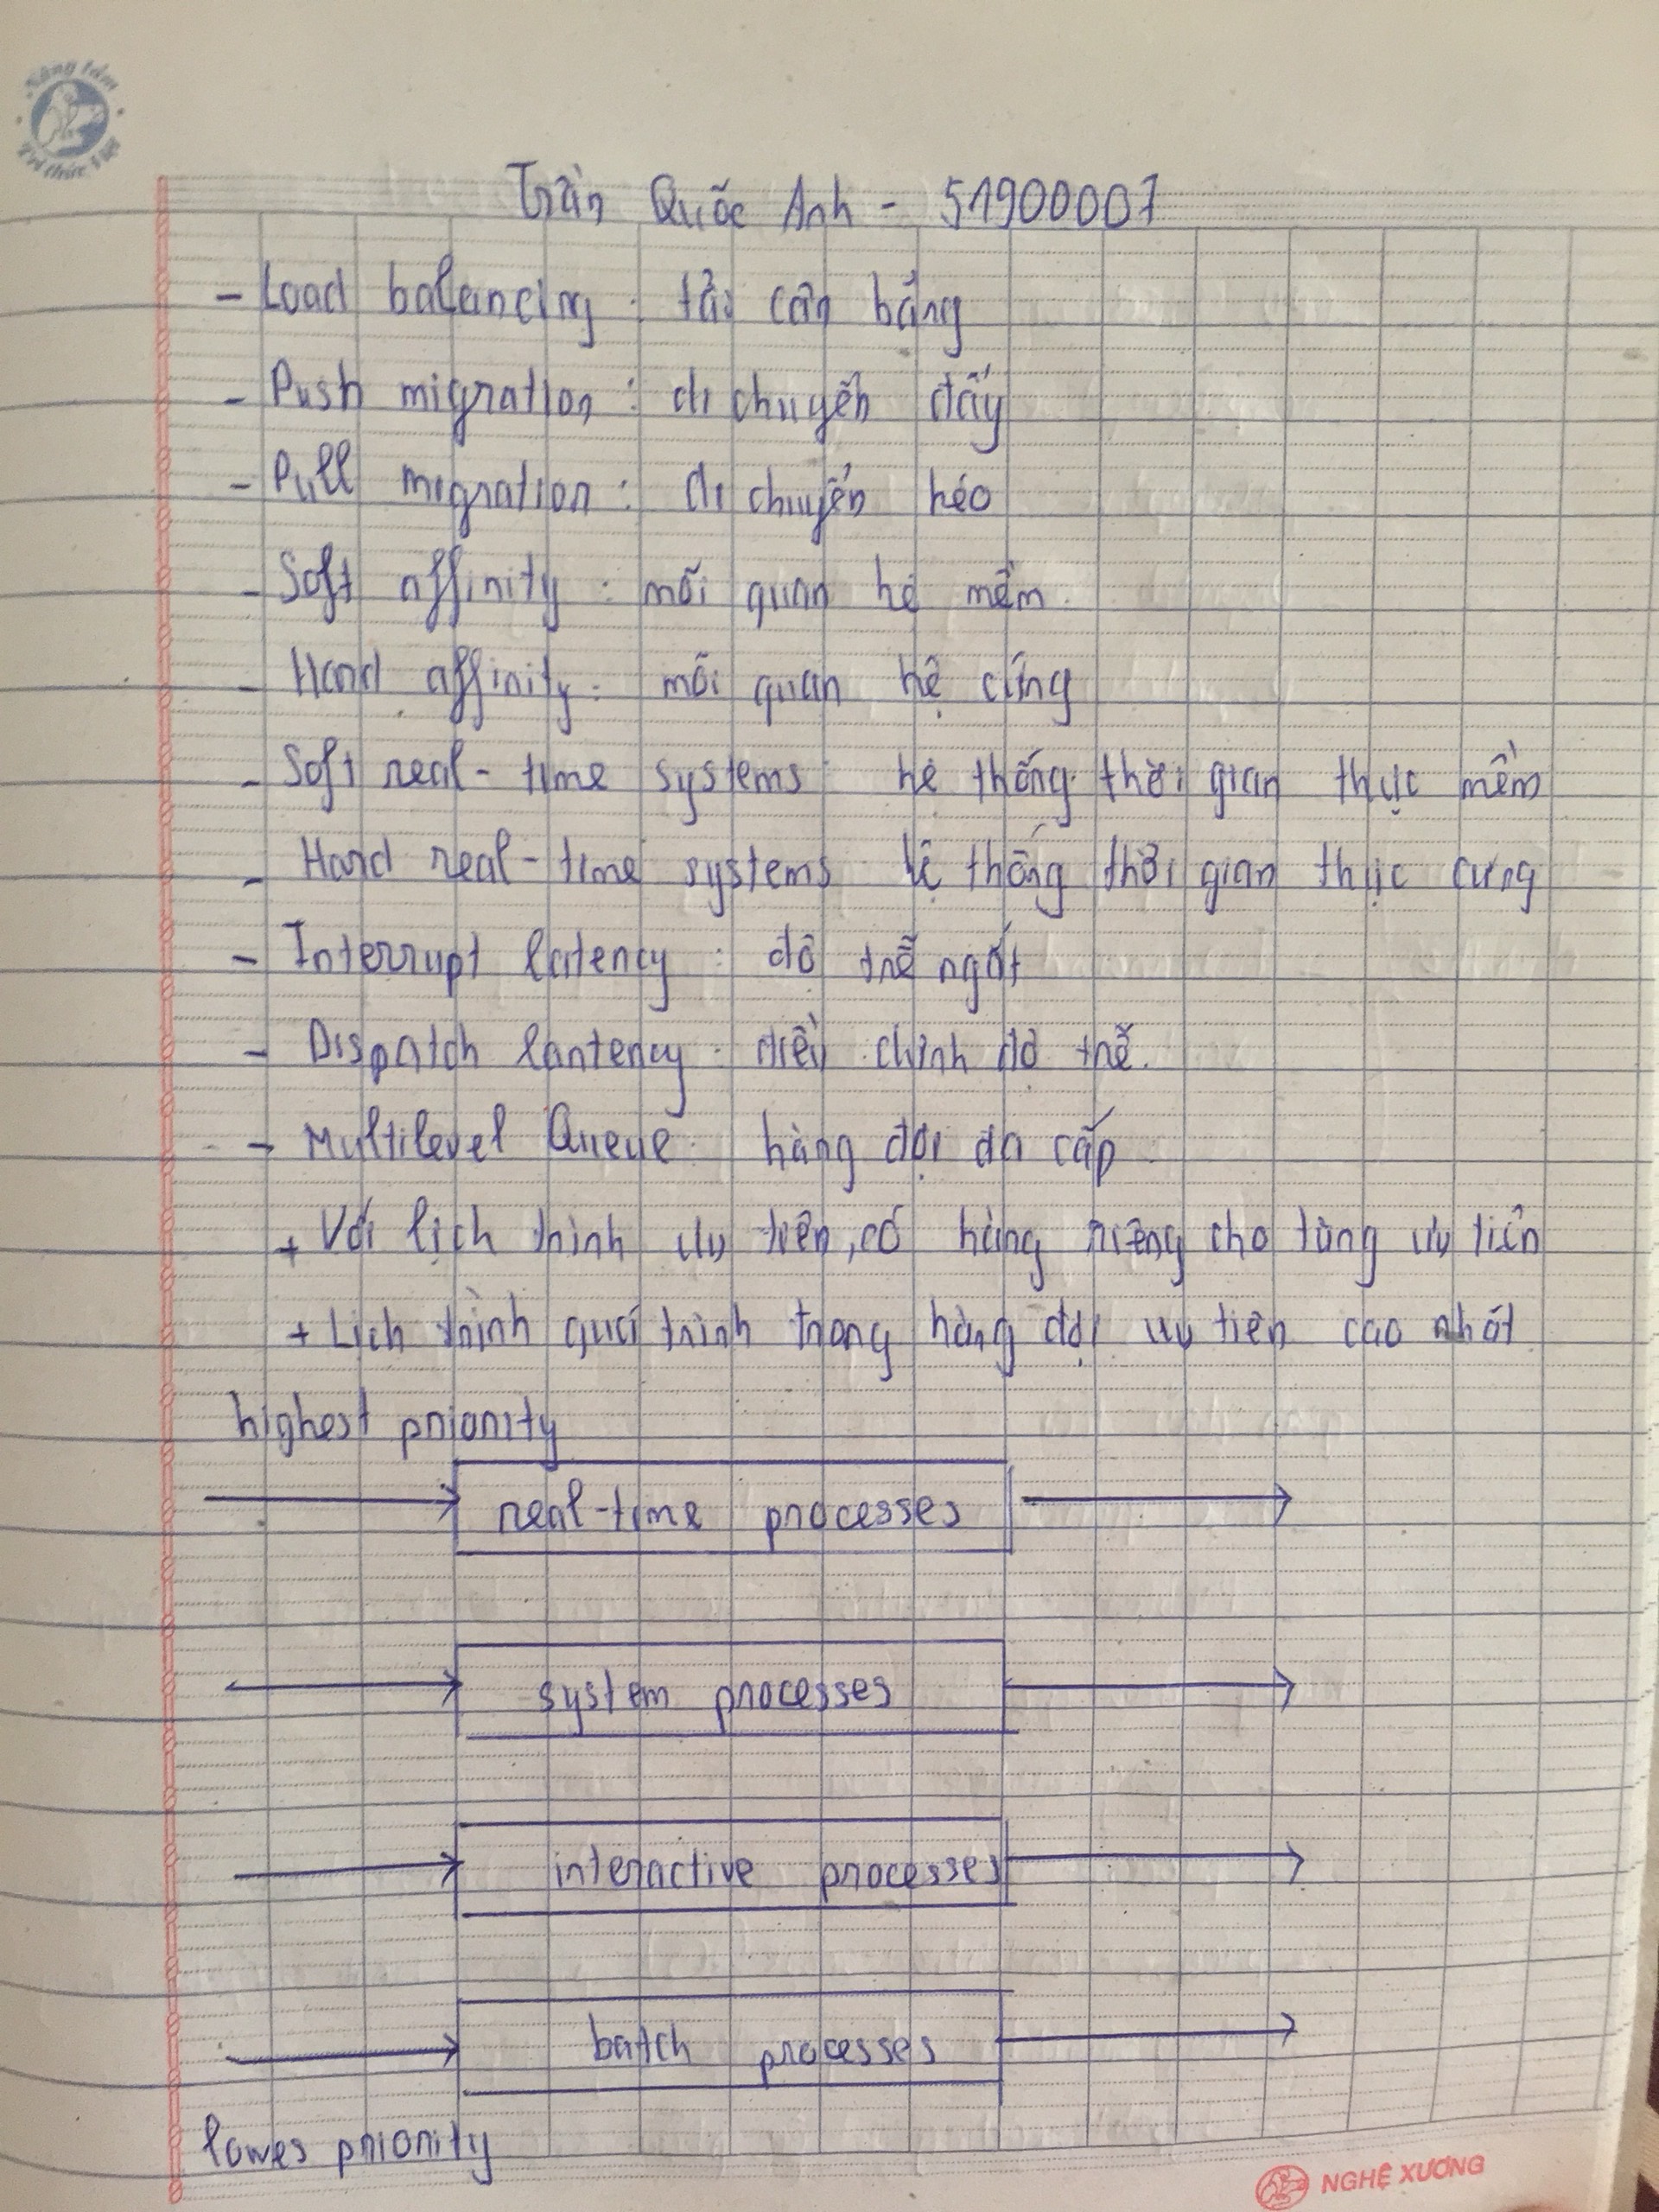 Sáng tầm
Trí thức Việt
Trần Quốc Anh - 51900007
- Load balancing : tải cân bằng
- Push migration : di chuyển đẩy
- Pull migration : di chuyển kéo
- Soft affinity : mối quan hệ mềm.
- Hard affinity : mối quan hệ cứng
- Soft real-time systems : hệ thống thời gian thực mềm
- Hard real-time systems hệ thống thời gian thực cứng
- Interrupt latency : độ trễ ngắt
- Dispatch lantency : điều chỉnh độ trễ.
- Multilevel Queue : hàng đợi đa cấp
+ Với lịch trình ưu tiên, có hàng riêng cho từng ưu tiên
+ Lịch trình quá trình trong hàng đợi ưu tiên cao nhất
highest priority
real-time processes
system processes
interactive processes
batch processes
lowes priority
NGHỆ XƯƠNG